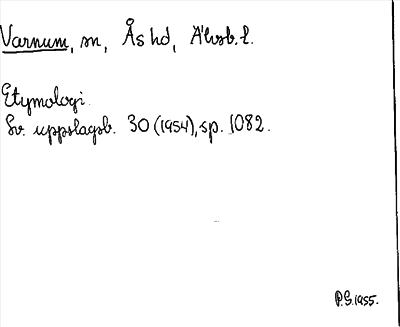 Varnum, sn, Ås hd, Älvsb. l.
Etymologi.
Sv. uppslagsb. 30 (1954), sp. 1082.
P.G. 1955.